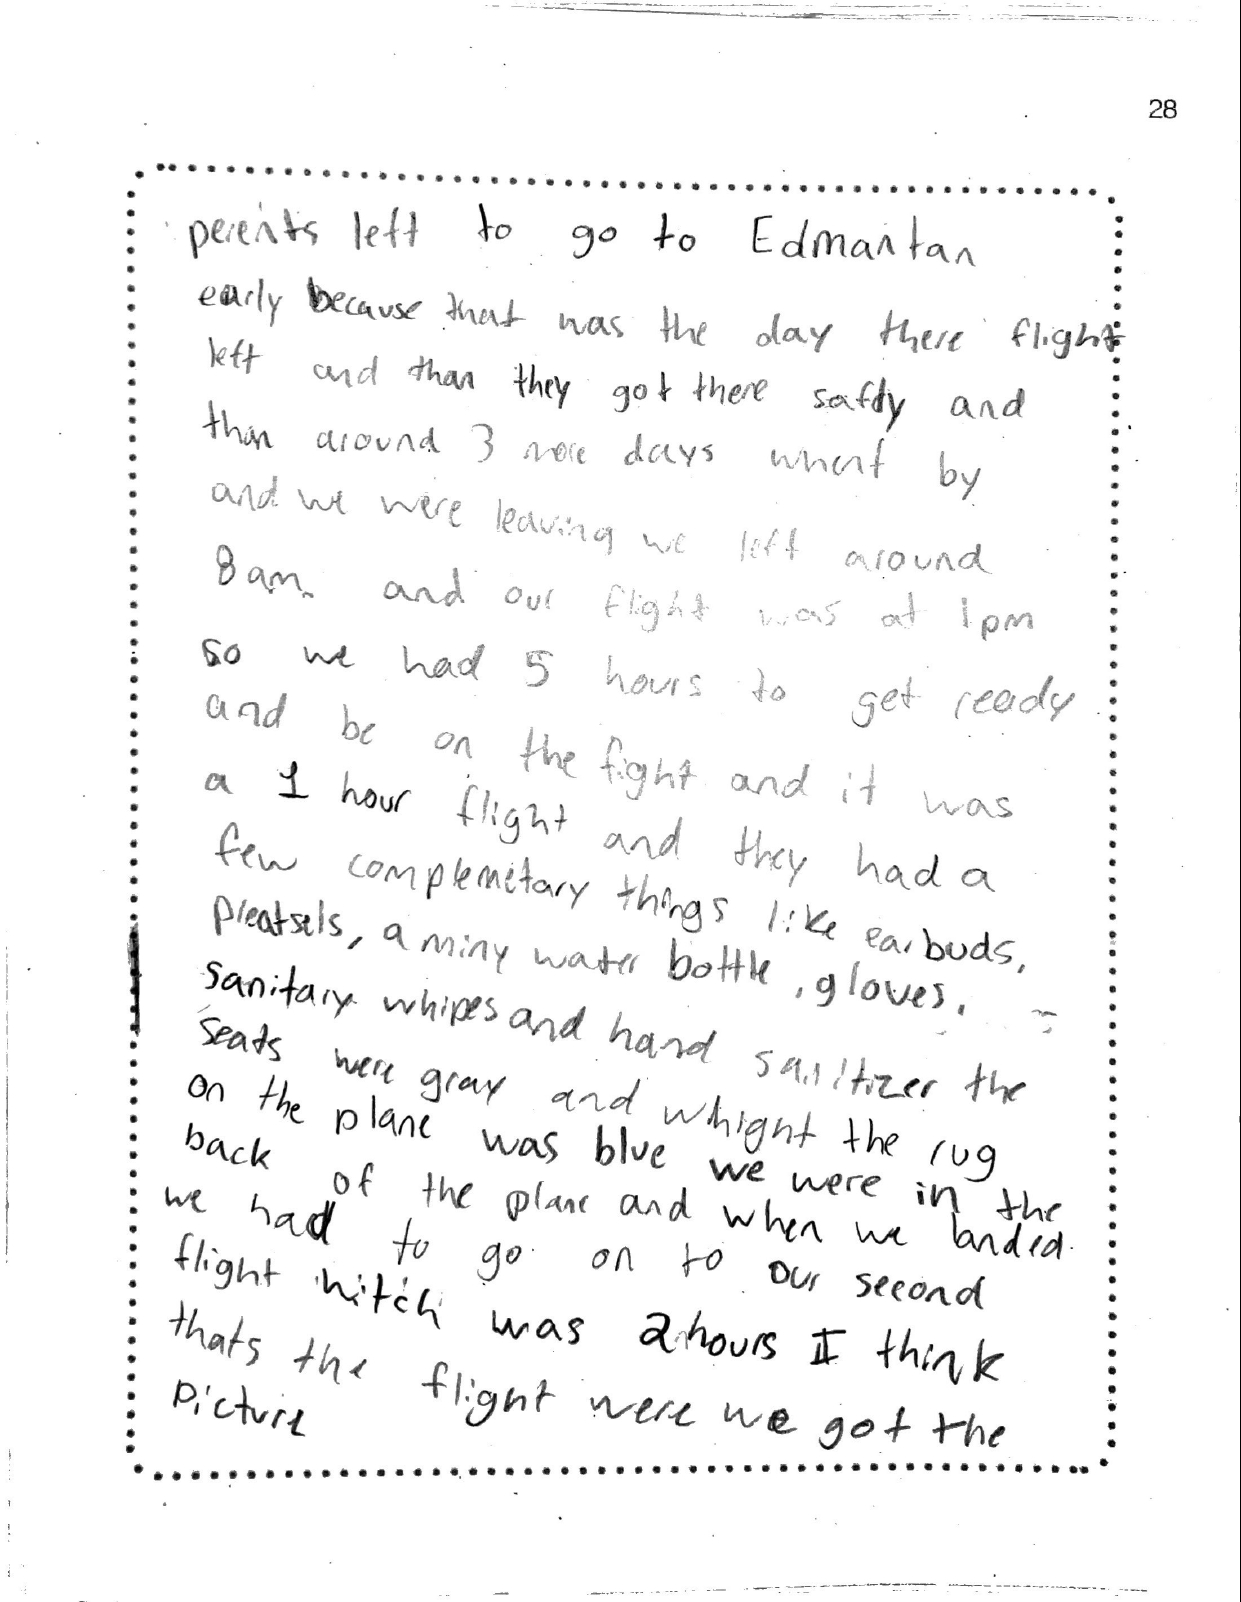 28
perents left to go to Edmantan
early because that was the day there flight
left and than they got there safly and
than around 3 more days whent by
and we were leaving we left around
8 am. and our flight was at 1pm
so we had 5 hours to get ready
and be on the fight and it was
a 1 hour flight and they had a
few complemetary things like earbuds,
pleatsels, a miny water bottle, gloves,
sanitary whipes and hand sanitizer the
seats were gray and whight the rug
on the plane was blue we were in the
back of the plane and when we landed
we had to go on to our second
flight witch was 2 hours I think
thats the flight were we got the
picture